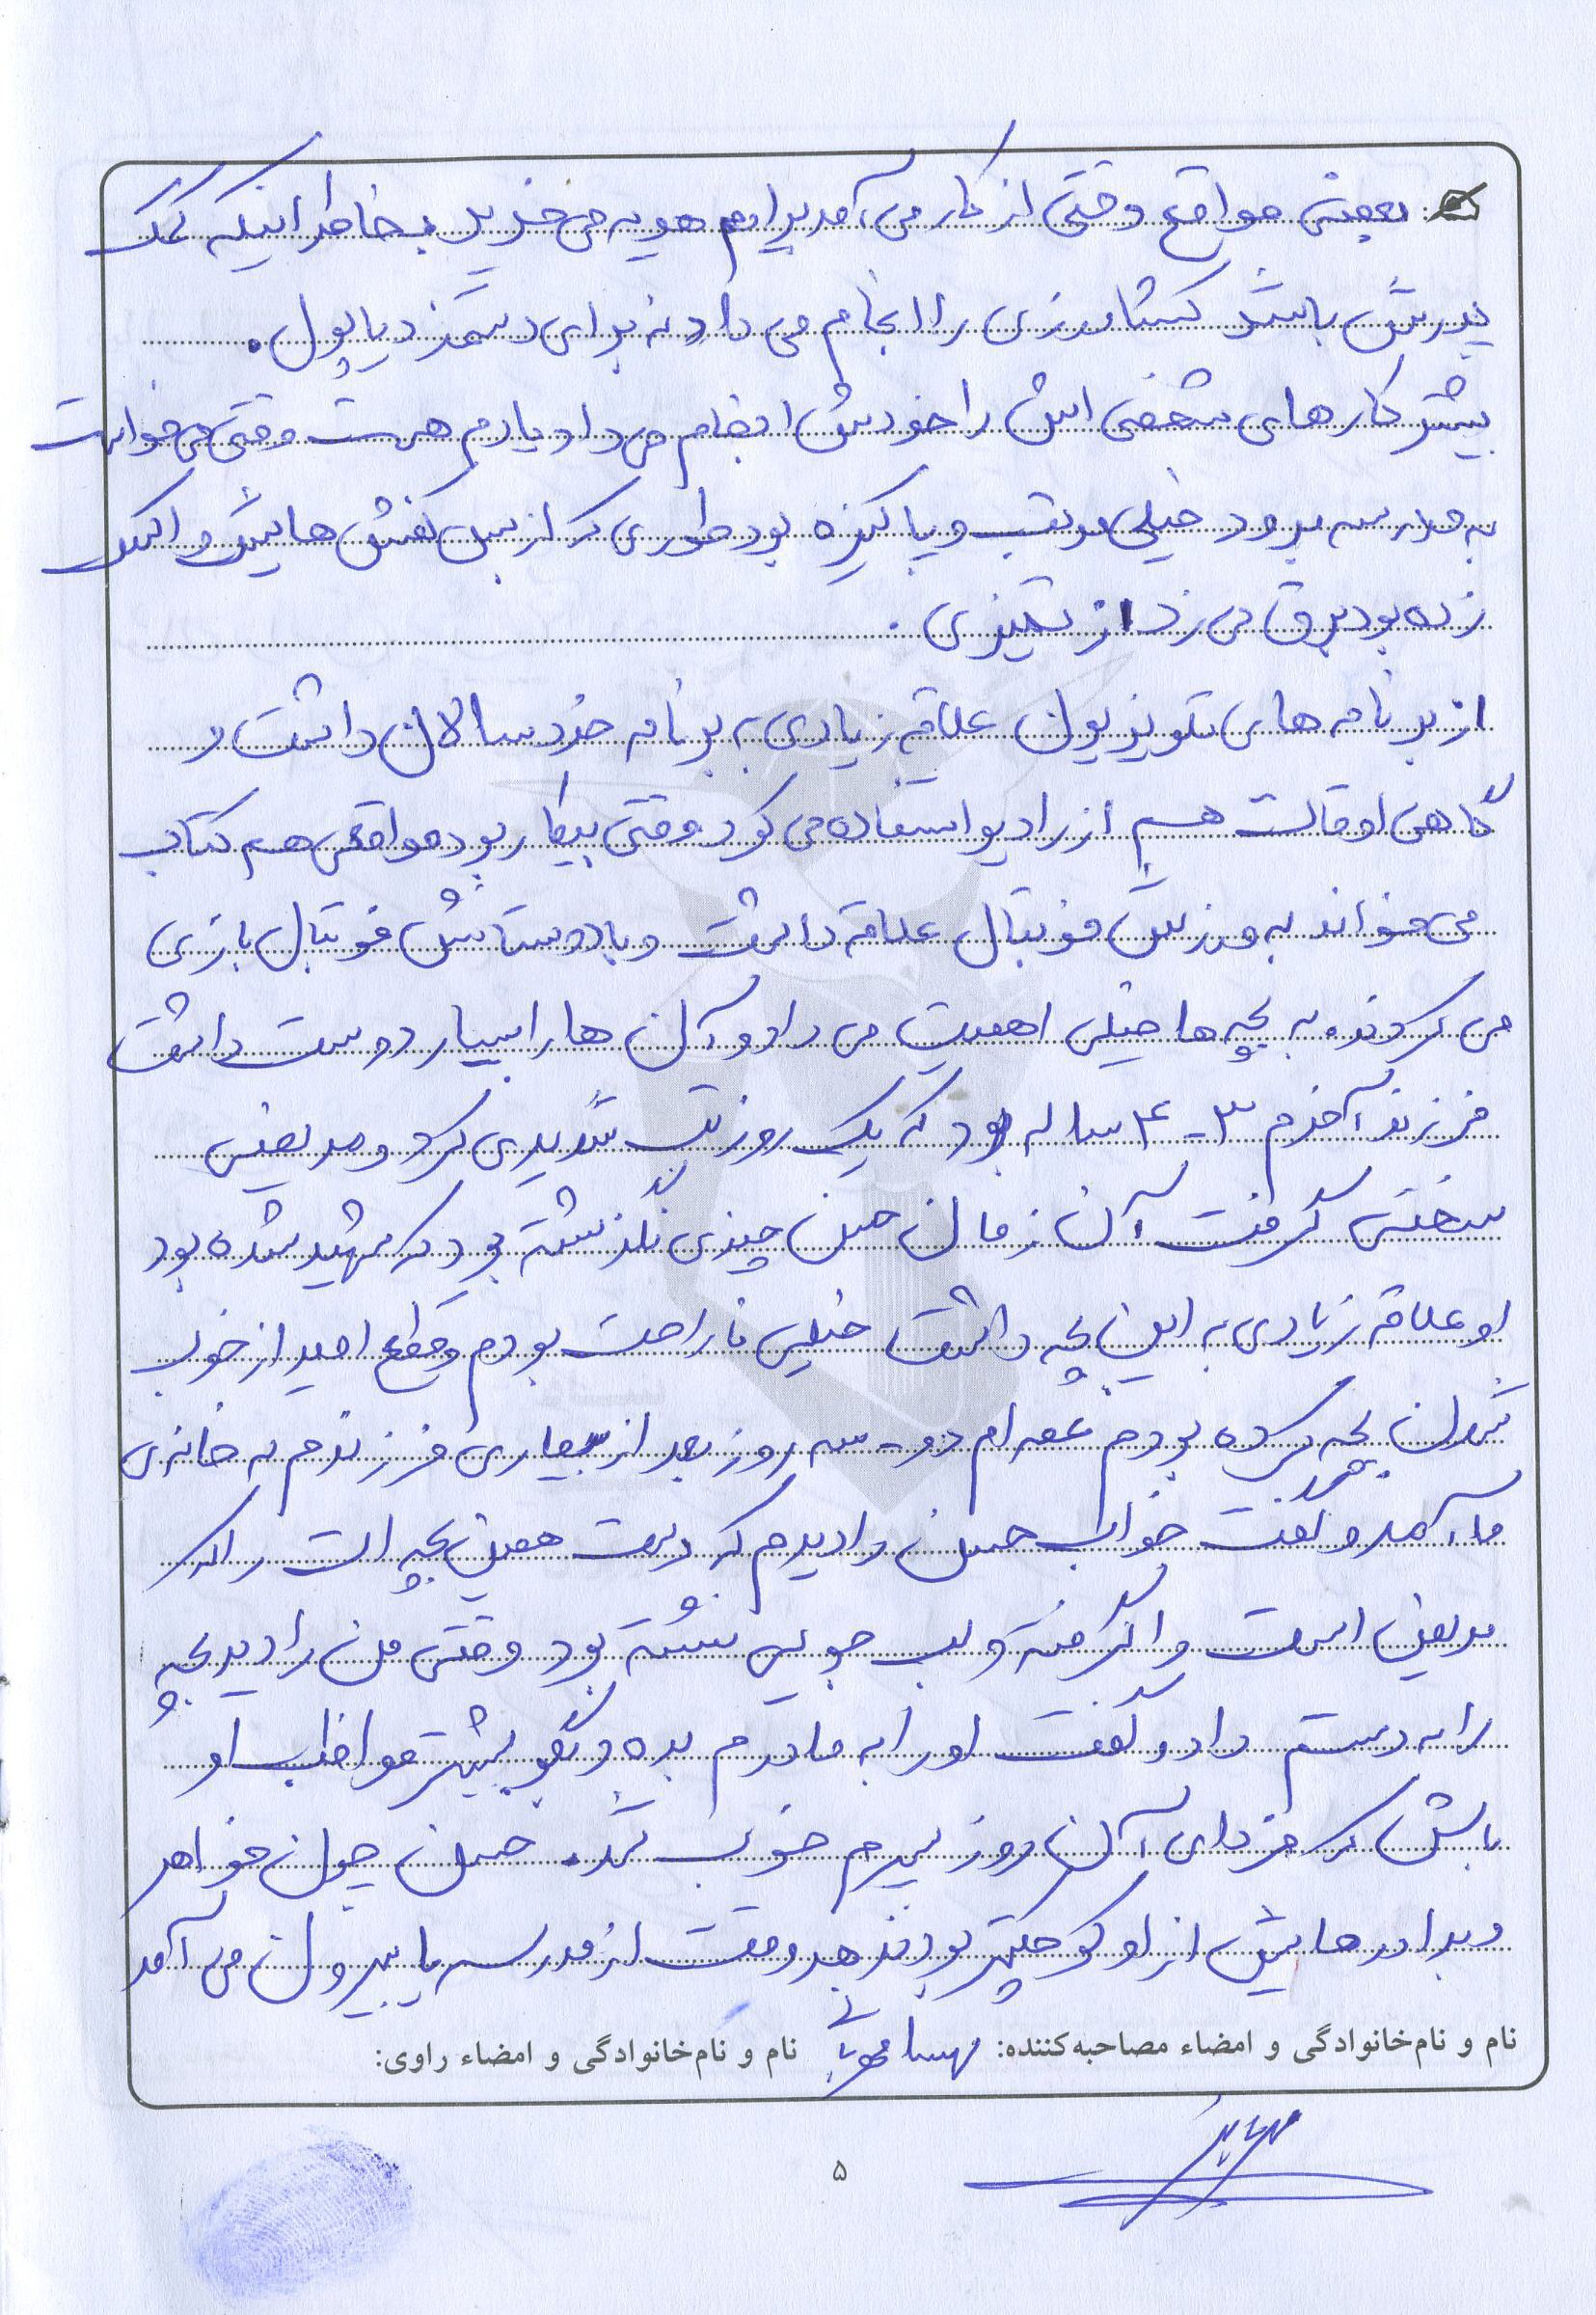 بعضی مواقع وقتی از کار می آمد برایم هدیه می خرید بخاطر اینکه کمک
پدرش باشد کشاورزی را انجام می داد نه برای دستمزد یا پول.
بیشتر کارهای شخصی اش را خودش انجام می داد یادم هست وقتی می خواست
به مدرسه برود خیلی مرتب و پاکیزه بود طوری که از بس کفش هایش واکس
زده بود برق می زد از تمیزی.
از برنامه های تلویزیون علاقه زیادی به برنامه خردسالان داشت و
گاهی اوقات هم از رادیو استفاده می کرد وقتی بیکار بود مواقعی هم کتاب
می خواند به ورزش فوتبال علاقه داشت و با دوستاش فوتبال بازی
می کردند. به بچه ها خیلی اهمیت می داد و آن ها را بسیار دوست داشت
فرزند آخرم ۳-۴ ساله بود که یک روز تب شدیدی کرد و مریضی
سختی گرفت آن زمان حسن چیزی نگذشته بود که شهید شده بود
او علاقه زیادی به این بچه داشت خیلی ناراحت بودم و قطع امید از خوب
شدن بچه کرده بودم عمه ام دو-سه روز بعد از بیماری فرزندم به خانه ی
ما آمد و گفت خواب حسن را دیدم که دست همین بچه ات را که
مریض است را گرفته و لب جویی نشسته بود وقتی من را دید بچه
را به دستم داد و گفت او را به مادرم بده و بگو بیشتر مواظب او
باش که فردای آن روز پسرم خوب شد. حسن چون خواهر
و برادرهایش از او کوچکتر بودند هر وقت از مدرسه یا بیرون می آمد
نام و نام‌خانوادگی و امضاء مصاحبه‌کننده: مهسا نام و نام‌خانوادگی و امضاء راوی:
۵